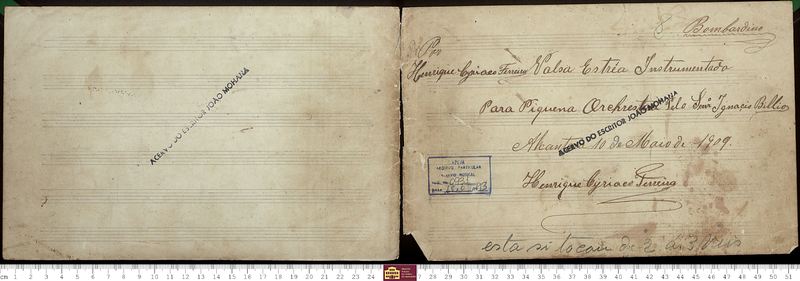 ACERVO DO ESCRITOR JOÃO MOHANA
8 Bombardino
Por
Henrique Cyriaco Ferreira Valsa Estréa Instrumentada
Para Piquena Orchrestra Pelo Snr. Ignacio Billio
ACERVO DO ESCRITOR JOÃO MOHANA
Alcantara 10 de Maio de 1909.
Henrique Cyriaco Ferreira
esta si tocau de 2 as 3 veis
cm 1 2 3 4 5 6 7 8 9 10 11 12 13 14 15 16 17 18 19 20 21 22 23 24 27 28 29 30 31 32 33 34 35 36 37 38 39 40 41 42 43 44 45 46 47 48 49 50 51